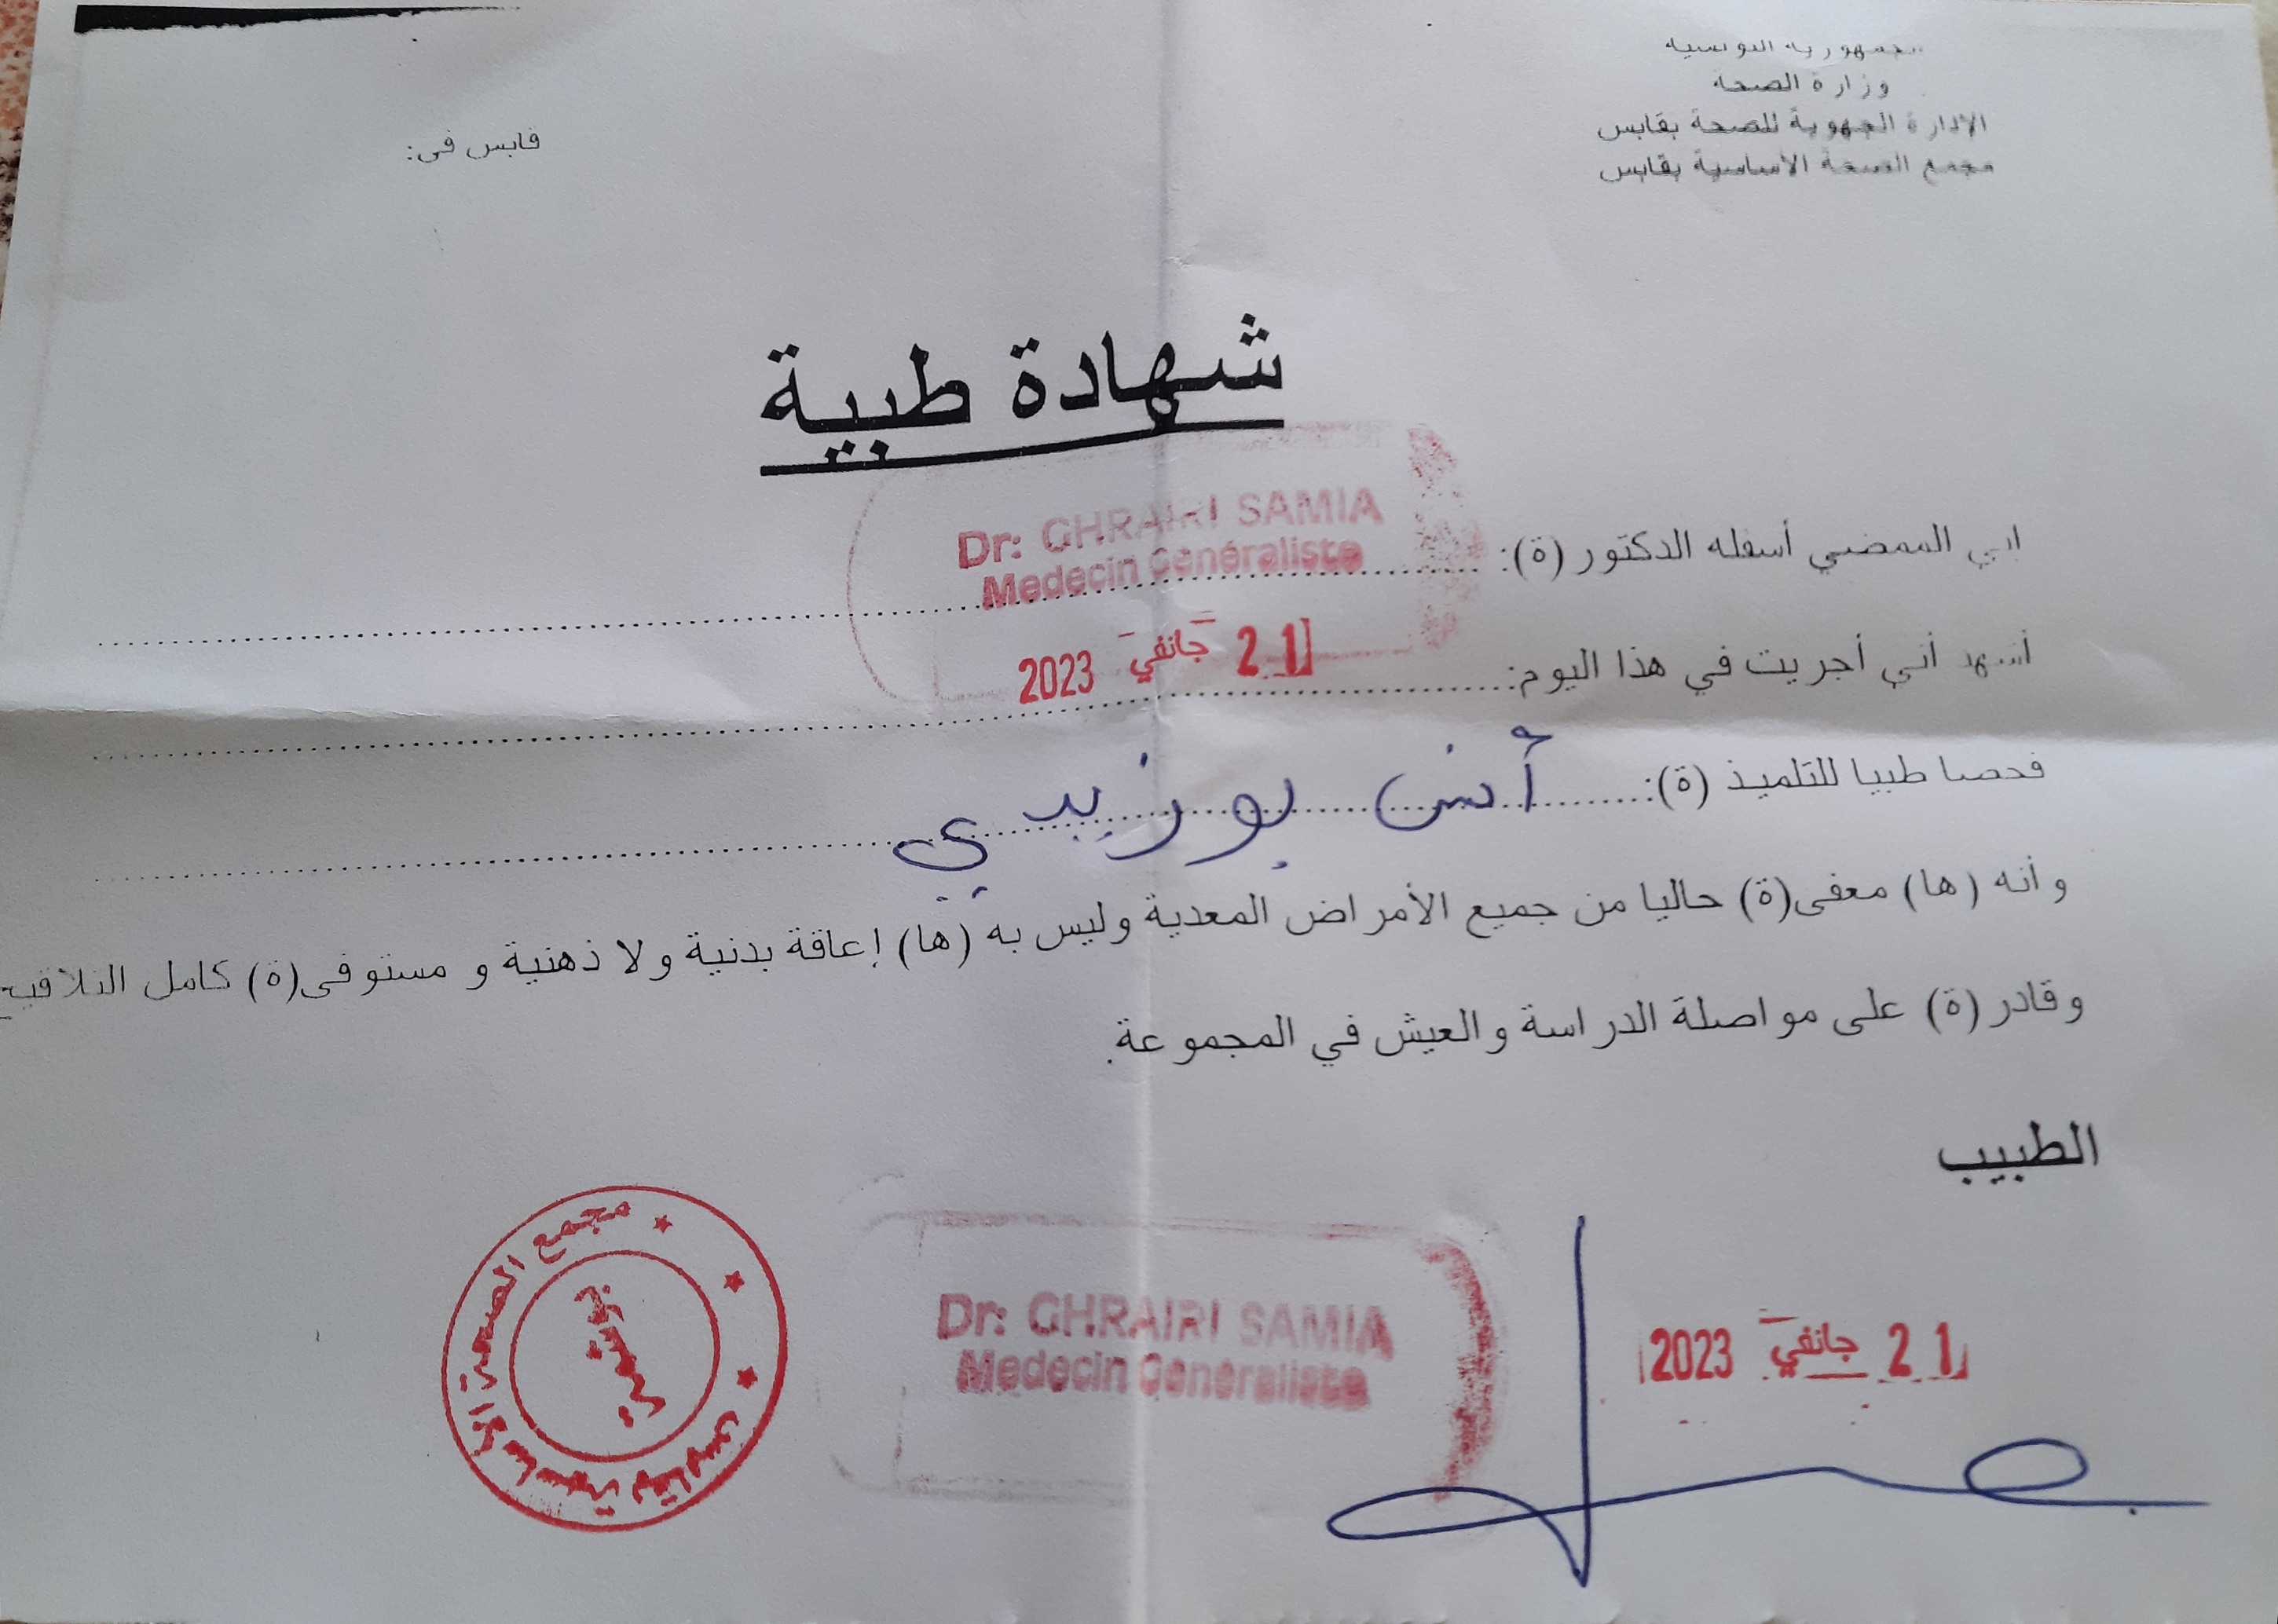 الجمهورية التونسية
وزارة الصحة
الإدارة الجهوية للصحة بقابس
مجمع الصحة الأساسية بقابس
قابس في:
شهادة طبية
إني الممضي أسفله الدكتور (ة):
Dr: GHRAIRI SAMIA
Medecin Généraliste
أشهد أني أجريت في هذا اليوم:
21 جانفي 2023
فحصا طبيا للتلميذ (ة): أنس بوزيدي
وأنه (ها) معفى(ة) حاليا من جميع الأمراض المعدية وليس به (ها) إعاقة بدنية ولا ذهنية و مستوفى(ة) كامل التلاقيح
وقادر (ة) على مواصلة الدراسة والعيش في المجموعة.
الطبيب
21 جانفي 2023
Dr: GHRAIRI SAMIA
Medecin Généraliste
مجمع الصحة الأساسية بقابس